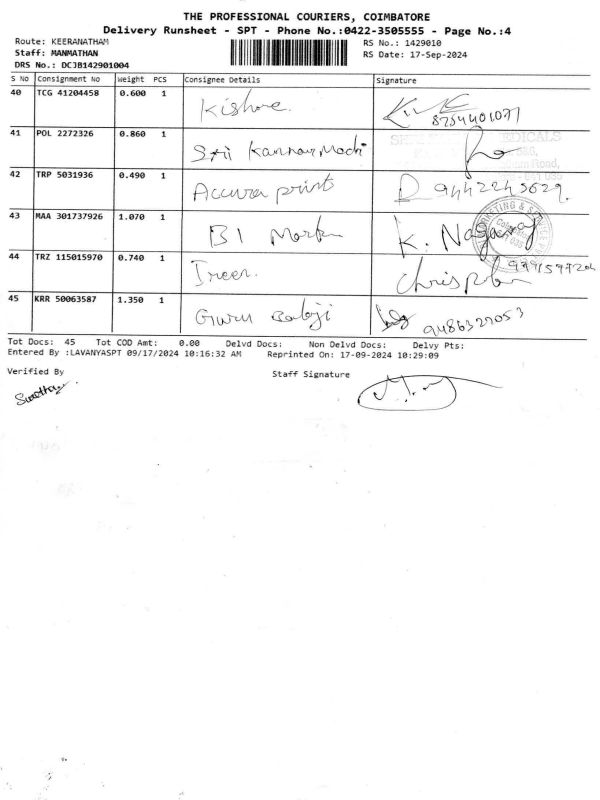 THE PROFESSIONAL COURIERS, COIMBATORE
Delivery Runsheet - SPT - Phone No.:0422-3505555 - Page No.:4
Route: KEERANATHAM RS No.: 1429010
Staff: MANMATHAN RS Date: 17-Sep-2024
DRS No.: DCJB142901004
S No Consignment No Weight PCS Consignee Details Signature
40 TCG 41204458 0.600 1 Kishore
8754401077
41 POL 2272326 0.860 1 Sri Kannan
42 TRP 5031936 0.490 1 Accura print 9442245629
43 MAA 301737926 1.070 1 K. Nagaraj
44 TRZ 115015970 0.740 1
45 KRR 50063587 1.350 1 Guru Balaji 9486327053
Tot Docs: 45 Tot COD Amt: 0.00 Delvd Docs: Non Delvd Docs: Delvy Pts:
Entered By :LAVANYASPT 09/17/2024 10:16:32 AM Reprinted On: 17-09-2024 10:29:09
Verified By Staff Signature